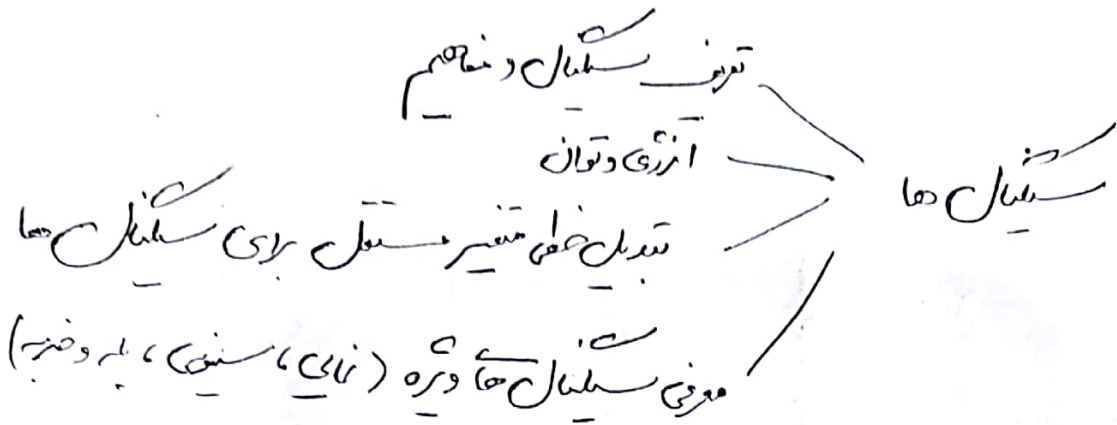 سیگنال ها
تعریف سیگنال و مفاهیم
انرژی و توان
تبدیل خطی متغیر مستقل برای سیگنال ها
معرفی سیگنال های ویژه (نمایی، سینوسی، پله و ضربه)